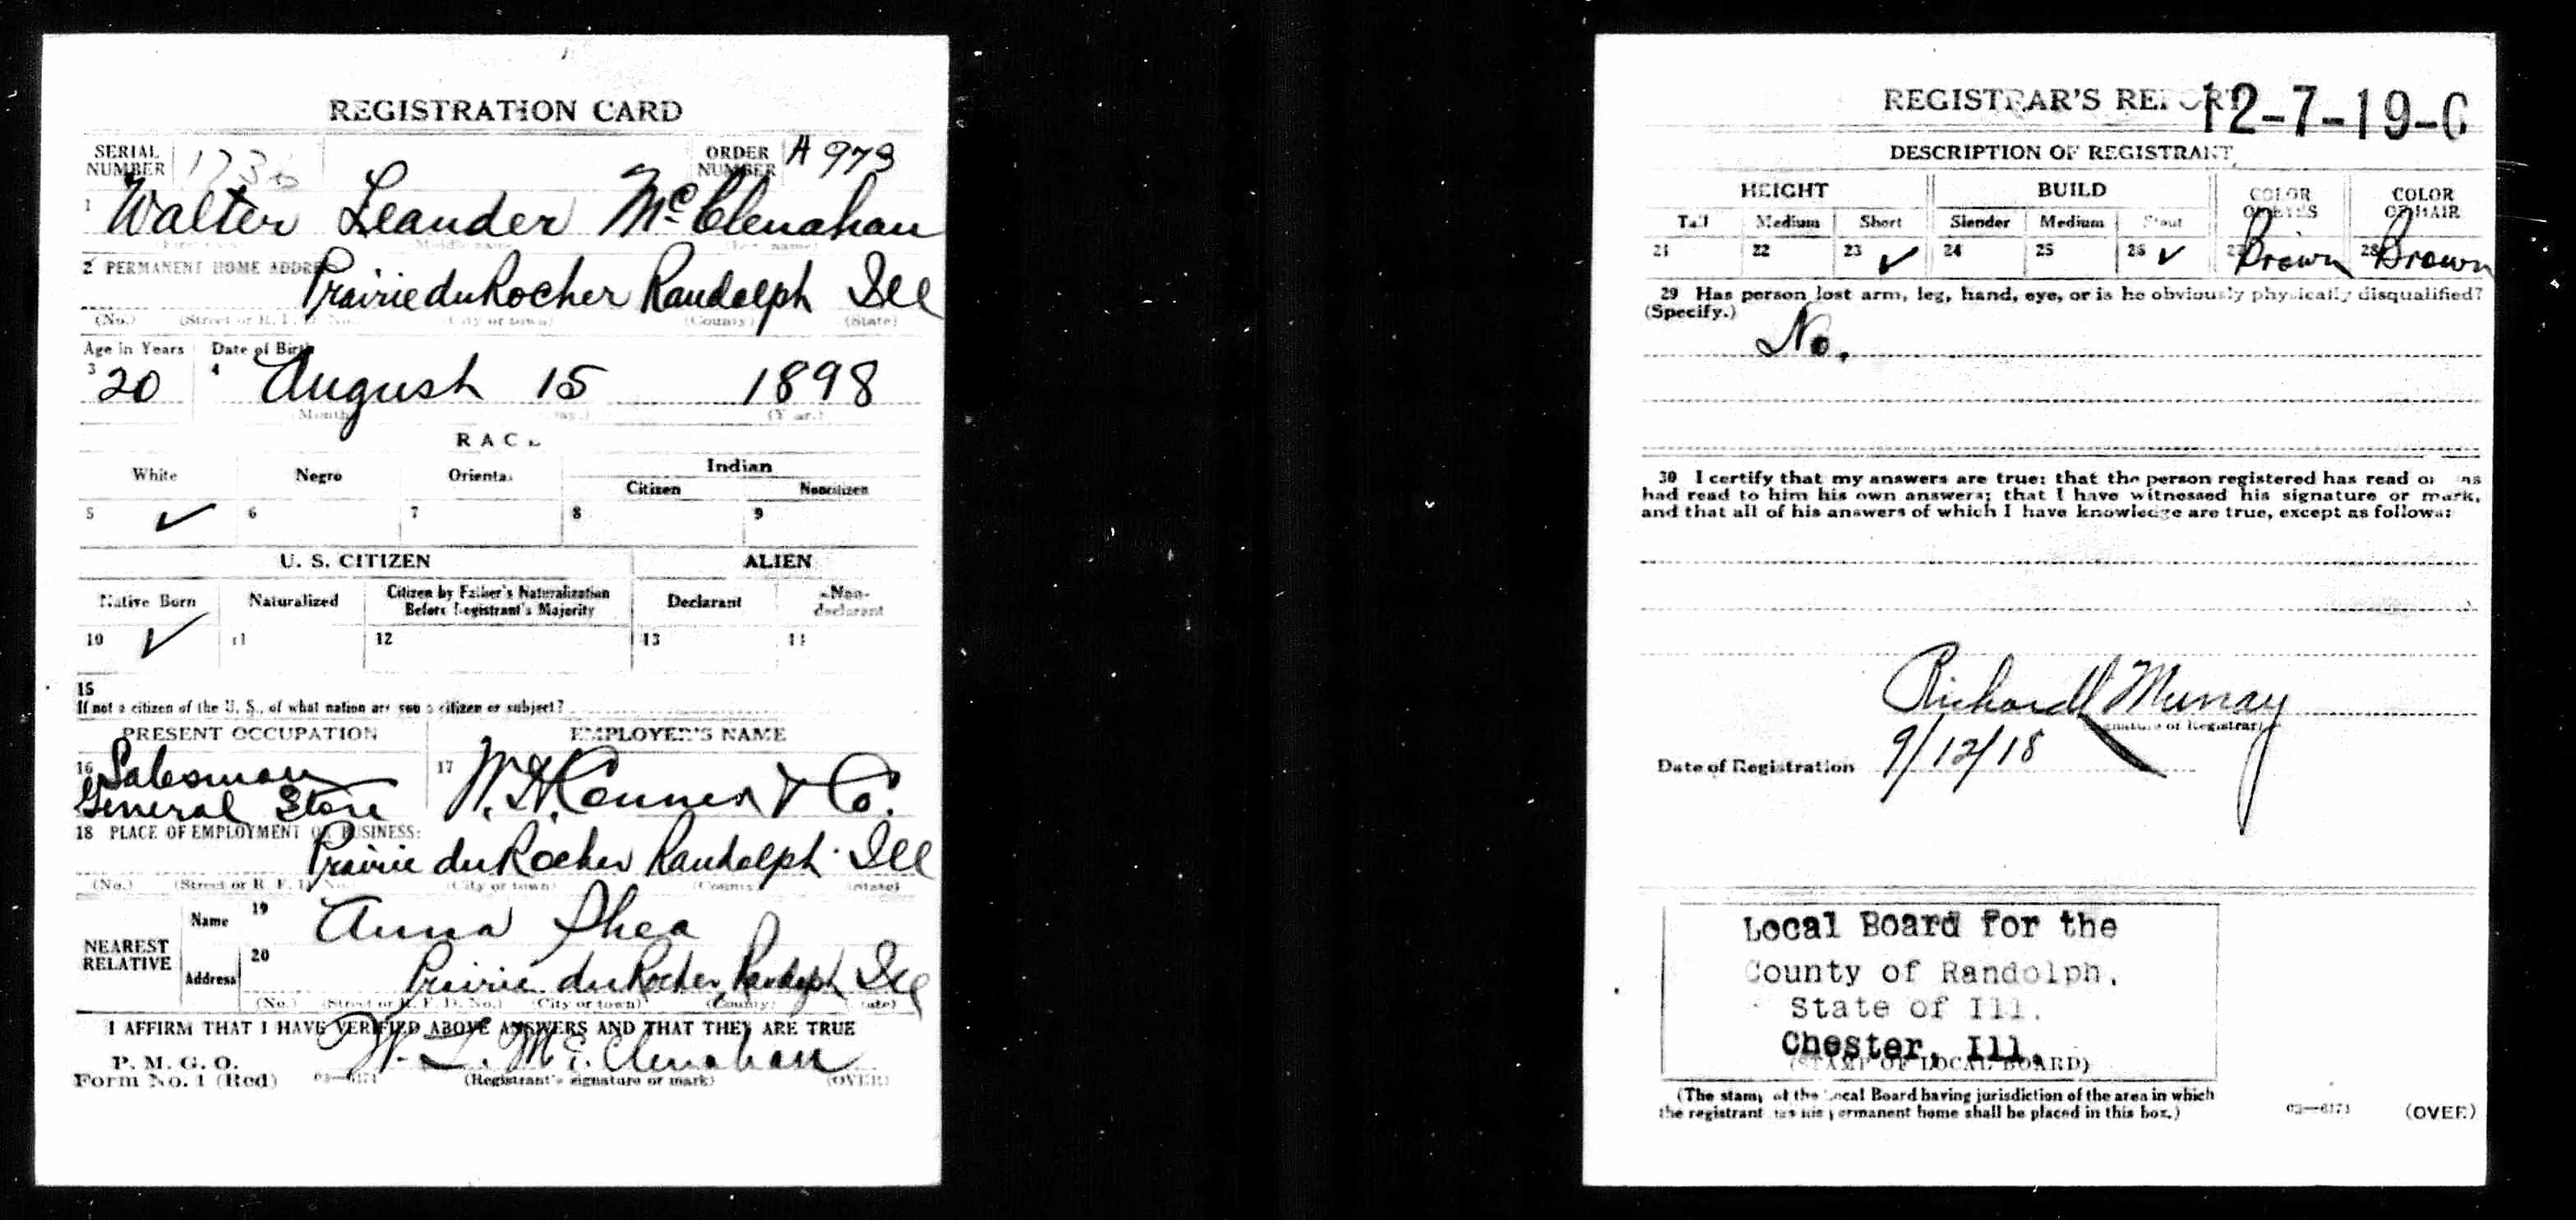 REGISTRATION CARD
SERIAL NUMBER
ORDER NUMBER A 973
1 Walter Leander McClenahan
(Middle name) (Last name)
2 PERMANENT HOME ADDRESS
Prairie du Rocher Randolph Ill
(No.) (Street or R. F. D. No.) (City or town) (County) (State)
Age in Years Date of Birth
3 20 4 August 15 1898
(Month) (Day.) (Year.)
RACE
White Negro Oriental Indian
Citizen Noncitizen
5 ✓ 6 7 8 9
U. S. CITIZEN ALIEN
Native Born Naturalized Citizen by Father's Naturalization Before Registrant's Majority Declarant Non-declarant
10 ✓ 11 12 13 14
15
If not a citizen of the U. S., of what nation are you a citizen or subject?
PRESENT OCCUPATION EMPLOYER'S NAME
16 Salesman
General Store
17 W. H. Conner & Co.
18 PLACE OF EMPLOYMENT OR BUSINESS:
Prairie du Rocher Randolph Ill
(No.) (Street or R. F. D. No.) (City or town) (County) (State)
NEAREST RELATIVE
Name 19 Anna Shea
Address 20 Prairie du Rocher, Randolph Ill
(No.) (Street or R. F. D. No.) (City or town) (County) (State)
I AFFIRM THAT I HAVE VERIFIED ABOVE ANSWERS AND THAT THEY ARE TRUE
P. M. G. O.
Form No. 1 (Red) 03—6171
W. L. McClenahan
(Registrant's signature or mark) (OVER)
REGISTRAR'S REPORT
12-7-19-C
DESCRIPTION OF REGISTRANT
HEIGHT BUILD COLOR OF EYES COLOR OF HAIR
Tall Medium Short Slender Medium Stout
21 22 23 ✓ 24 25 26 ✓ 27 Brown 28 Brown
29 Has person lost arm, leg, hand, eye, or is he obviously physically disqualified?
(Specify.)
No.
30 I certify that my answers are true; that the person registered has read or has
had read to him his own answers; that I have witnessed his signature or mark,
and that all of his answers of which I have knowledge are true, except as follows:
Richard Murray
(Signature of Registrar)
Date of Registration 9/12/18
Local Board for the
County of Randolph,
State of Ill.
Chester, Ill.
(STAMP OF LOCAL BOARD)
(The stamp of the Local Board having jurisdiction of the area in which
the registrant has his permanent home shall be placed in this box.)
03—6171 (OVER)